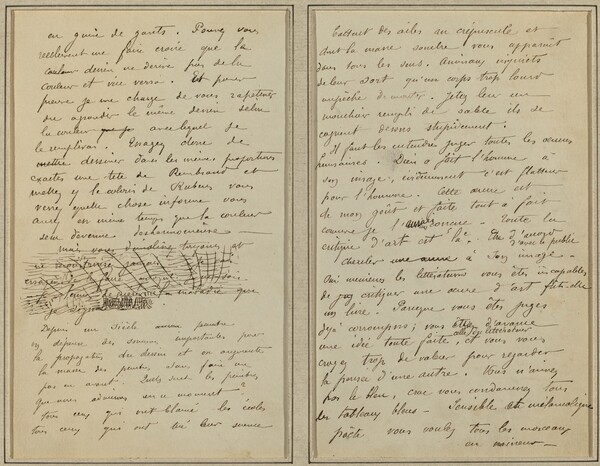 en guise de gants. Pouvez vous
réellement me faire croire que le
dessin ne dérive pas de la
couleur et vice versa. Et pour
preuve je me charge de vous rapetisser
ou agrandir le même dessin selon
la couleur avec laquelle je
le remplirai. Essayez donc de
dessiner dans les mêmes proportions
exactes une tête de Rembrandt et
mettez y le coloris de Rubens vous
verrez quelle chose informe vous
aurez en même temps que la couleur
sera devenue désharmonieuse —
mais vous
que
Depuis un siècle on
dépense des sommes importantes pour
la propagation du dessin et on augmente
la masse des peintres sans faire un
pas en avant. Quels sont les peintres
que nous admirons en ce moment -?
Tous ceux qui ont blamé les écoles
tous ceux qui ont tiré leur science
battant des ailes au crépuscule et
dont la masse sombre vous apparaît
dans tous les sens. Animaux inquiets
de leur sort qu'un corps trop lourd
empêche de monter. Jetez leur un
mouchoir rempli de sable ils se
cognent dessus stupidement.
Il faut les entendre juger toutes les œuvres
humaines. Dieu a fait l'homme à
son image, évidemment c'est flatteur
pour l'homme. Cette œuvre est
de mon goût et faite tout à fait
comme je l'aurais conçue. Toute la
critique d'art est là. Etre d'accord
avec le public
chercher une œuvre à son image —
Oui messieurs les littérateurs vous êtes incapables
de critiquer une œuvre d'art fût-elle
un livre. Parceque vous êtes juges
déjà corrompus; vous avez d'avance
une idée toute faite, celle du littérateur, et vous vous
croyez trop de valeur pour regarder
la pensée d'une autre. Vous n'aimez
pas le bleu, car vous condamnez tous
les tableaux bleus — Sensible et mélancolique
poëte vous voulez tous les morceaux
en mineur —